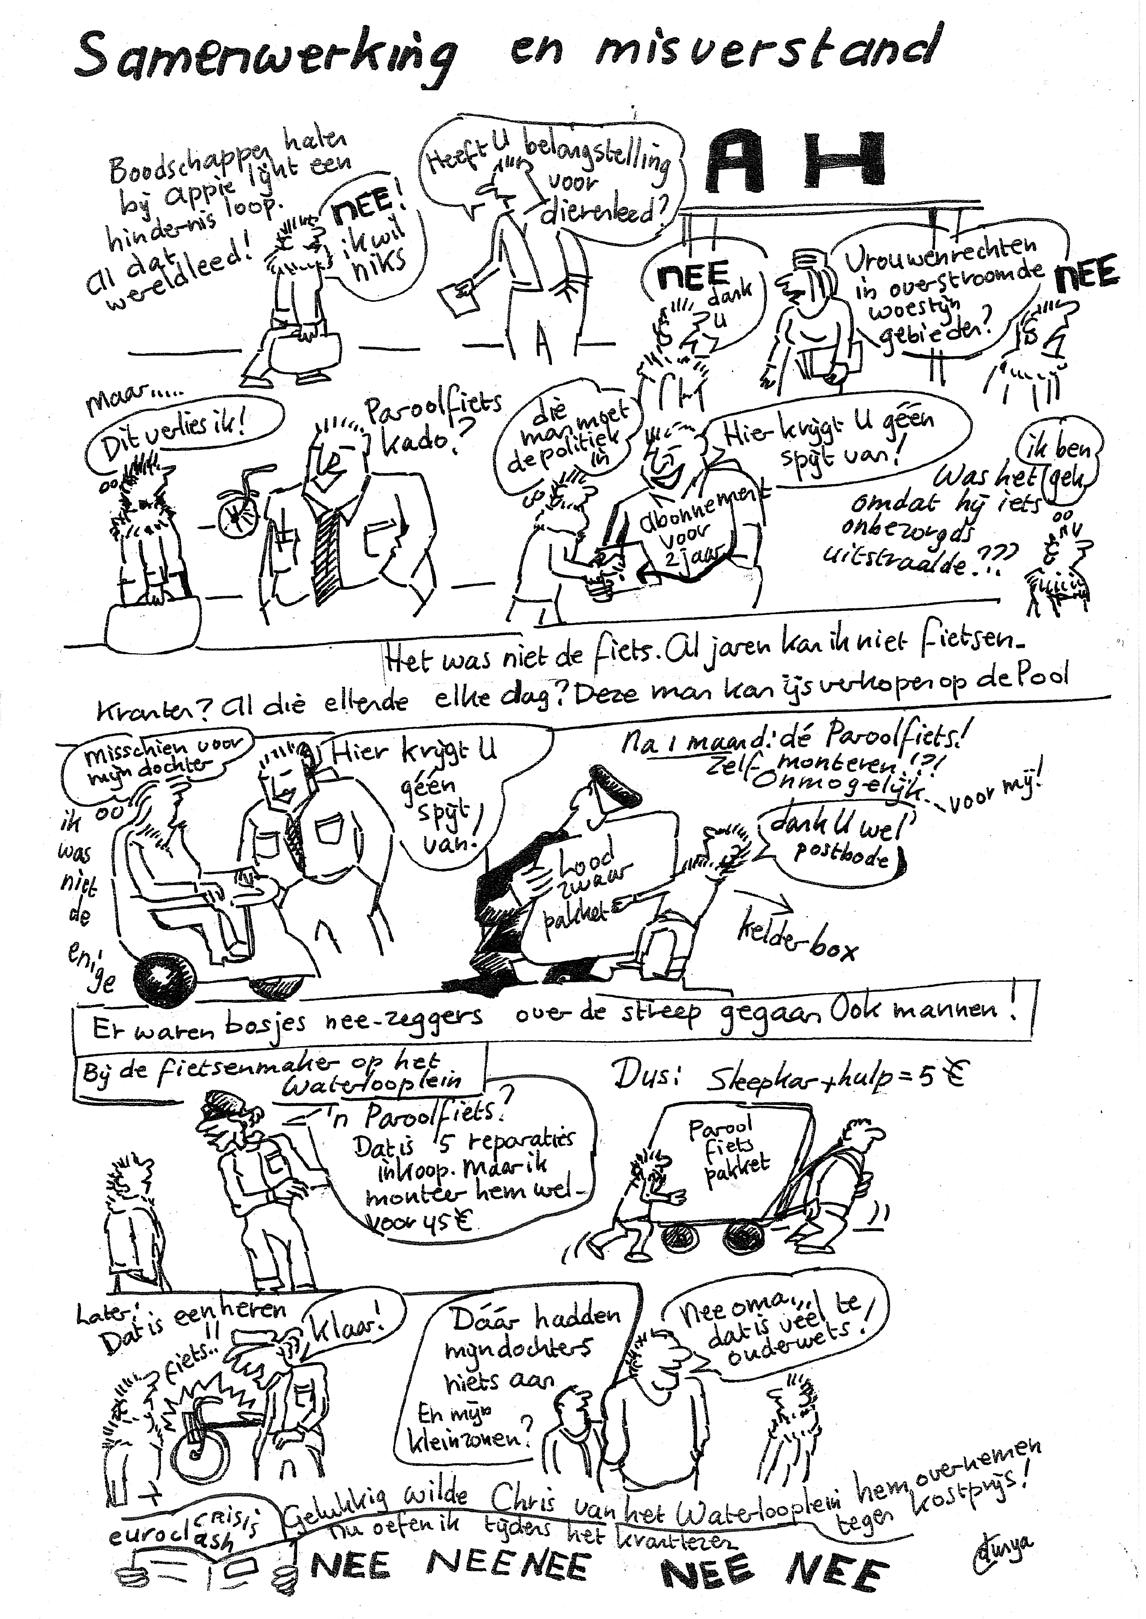 Samenwerking en misverstand
Boodschappen halen
bij appie lijkt een
hindernis loop.
Al dat
wereldleed!
NEE!
ik wil
niks
Heeft U belangstelling
voor
dierenleed?
AH
NEE
dank
U
Vrouwenrechten
in overstroomde
woestijn
gebieden?
NEE
maar.....
Dit verlies ik!
Paroolfiets
kado?
diè
man moet
de politiek
in
Hier krijgt U géén
spijt van!
abonnement
voor
2 jaar
ik ben
gek
Was het
omdat hij iets
onbezorgds
uitstraalde???
Het was niet de fiets. Al jaren kan ik niet fietsen.
Kranten? Al diè ellende elke dag? Deze man kan ijs verkopen op de Pool
misschien voor
mijn dochter
ik
was
niet
de
enige
Hier krijgt U
géén
spijt
van!
Na 1 maand: dé Paroolfiets!
Zelf monteren!?!
Onmogelijk...
voor mij!
dank U wel
postbode
Lood
zwaar
pakket
kelderbox
Er waren bosjes nee-zeggers over de streep gegaan Ook mannen!
Bij de fietsenmaker op het
Waterlooplein
'n Paroolfiets?
Dat is 5 reparaties
inkoop. Maar ik
monteer hem wel-
voor 45 €
Dus: Sleepkar + hulp = 5 €
Parool
fiets
pakket
Later:
Dat is een heren
fiets..!!
Klaar!
Dáár hadden
mijn dochters
niets aan
En mijn
kleinzonen?
Nee oma,,,
dat is véél te
ouderwets!
Gelukkig wilde Chris van het Waterlooplein hem overnemen
tegen kostprijs!
nu oefen ik tijdens het krantlezen
euroclash
CRISIS
NEE NEE NEE NEE NEE